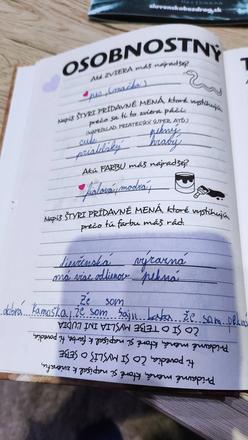 slovenskobezdrog.sk
OSOBNOSTNÝ
Aké ZVIERA máš najradšej?
pes, (mačka)
Napíš ŠTYRI PRÍDAVNÉ MENÁ, ktoré vystihujú,
prečo sa ti to zviera páči:
(NAPRÍKLAD: PRIATEĽSKÝ, SUPER, ATĎ.)
cute pekný
priateľský hravý
Akú FARBU máš najradšej?
fialová, modrá,
Napíš ŠTYRI PRÍDAVNÉ MENÁ, ktoré vystihujú,
prečo tú farbu máš rád:
dievčenská výrazná
má viac odtieňov pekná
Že som
dobrá kamoška, že som
že som pekná
ČO SI O TEBE MYSLIA INÍ ĽUDIA
Prídavné mená, ktoré si napísal k farbe, ti povedia,
ti povedia, ČO SI MYSLÍŠ O SEBE
Prídavné mená, ktoré si napísal k zvieraťu,